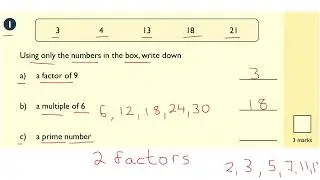 1
3 4 13 18 21
Using only the numbers in the box, write down
a) a factor of 9 3
b) a multiple of 6 6, 12, 18, 24, 30 18
c) a prime number
3 marks
2 factors
2, 3, 5, 7, 11, 1